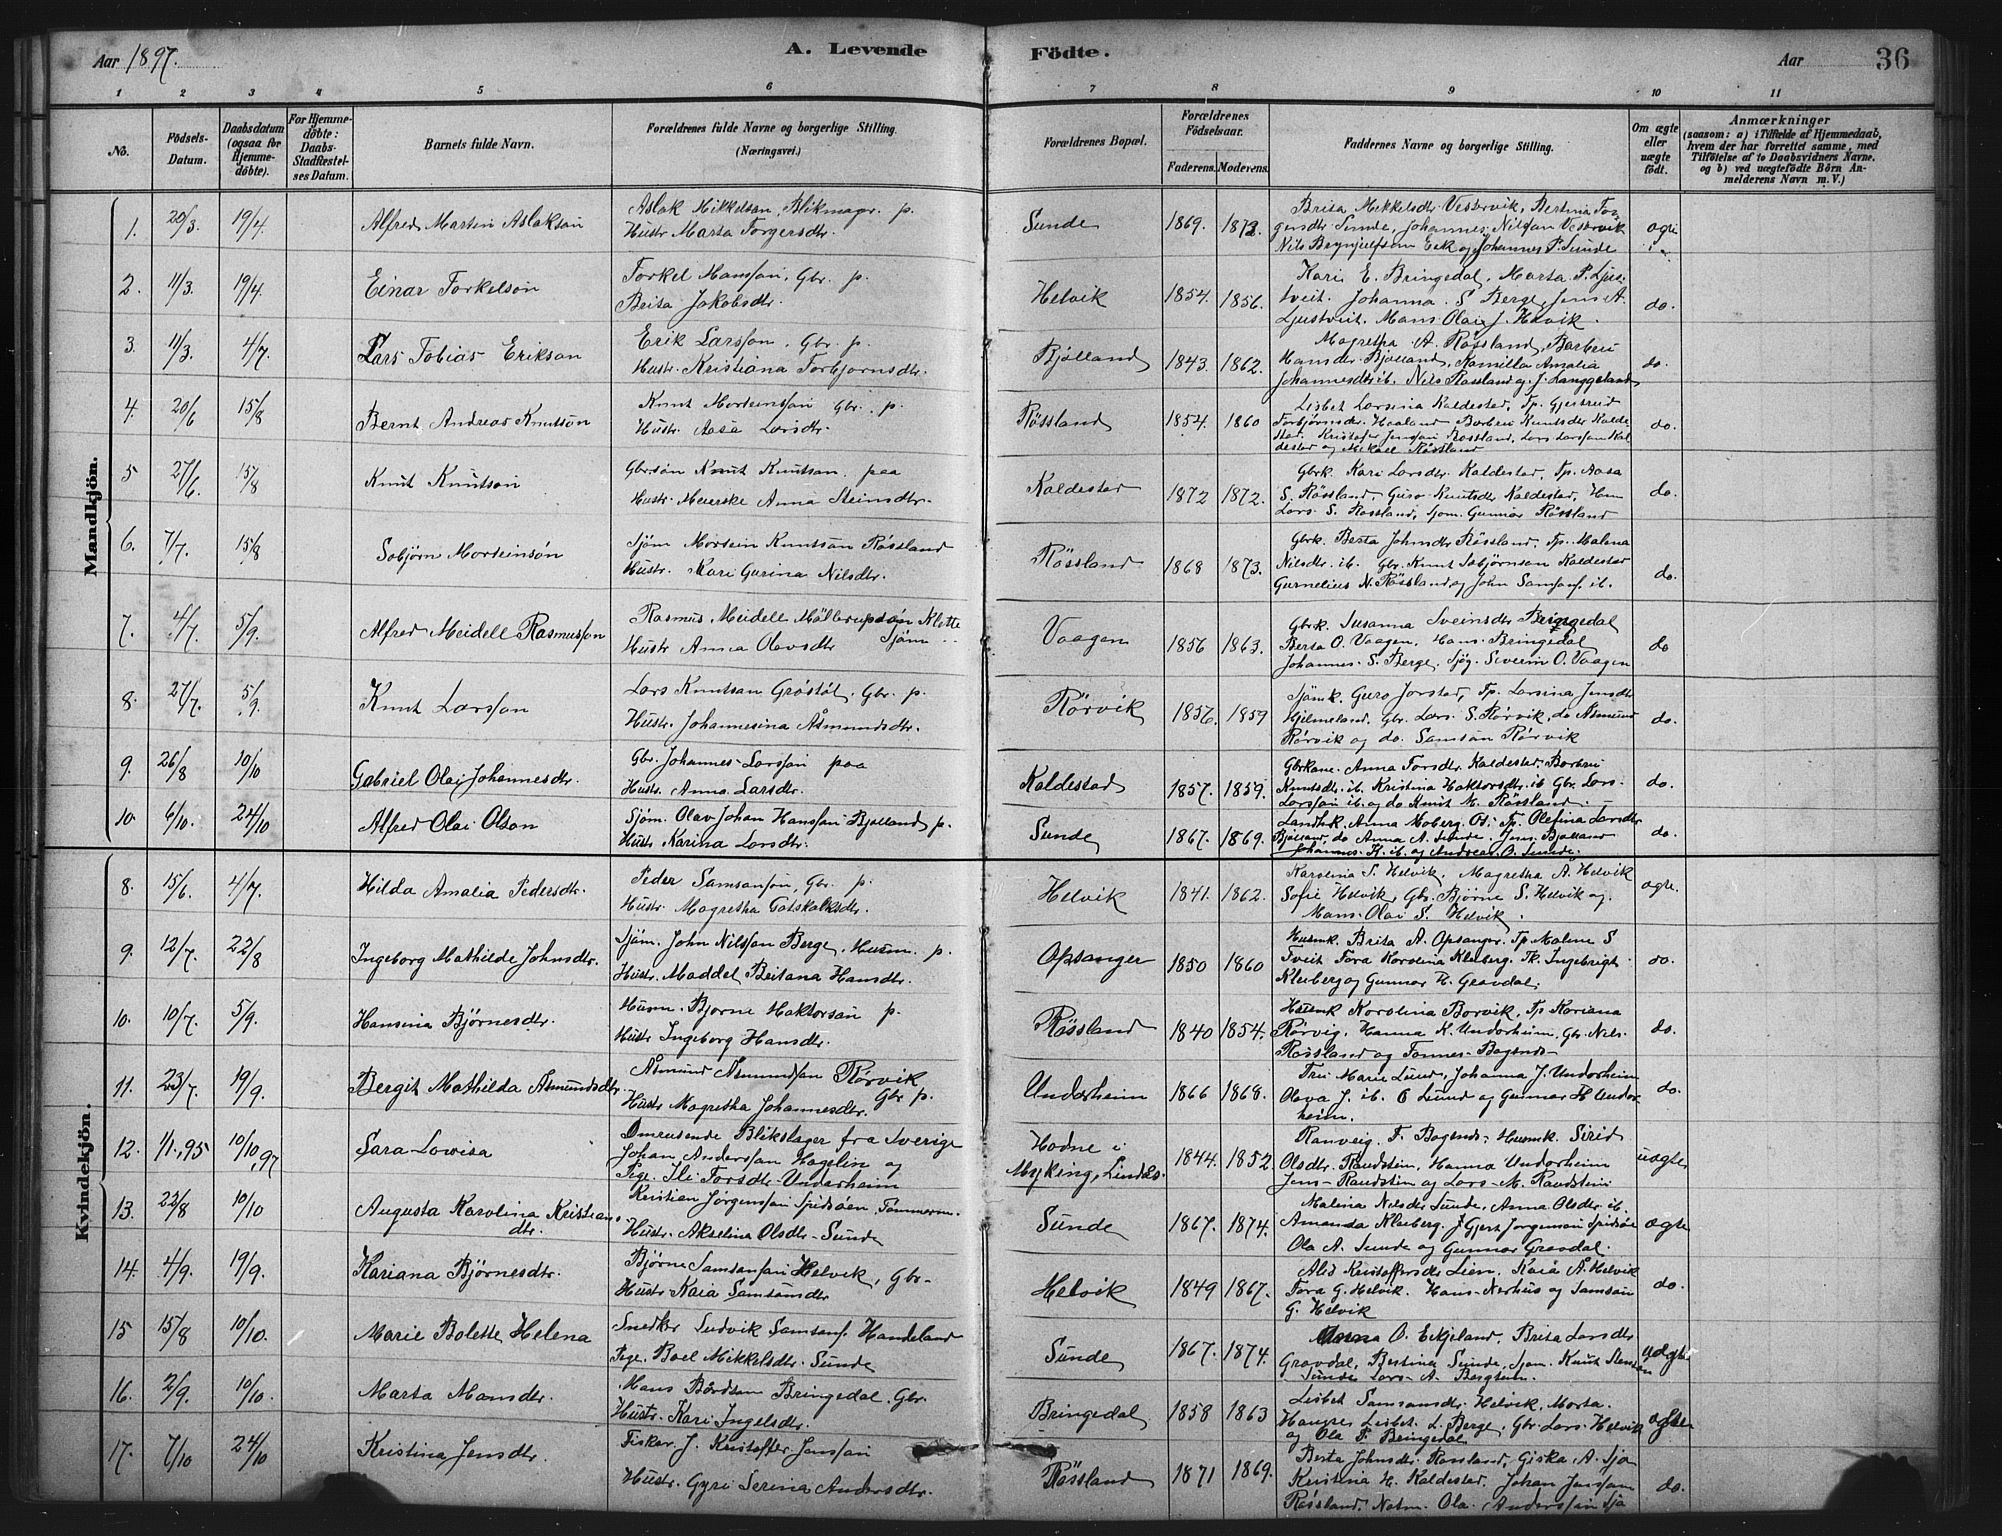 Aar 1897.
A. Levende Födte.
Aar
36
1 2 3 4 5 6 7 8 9 10 11
No.
Födsels-Datum.
Daabsdatum (ogsaa for Hjemme-döbte).
For Hjemme-döbte: Daabs-Stadfæstel-ses Datum.
Barnets fulde Navn.
Forældrenes fulde Navne og borgerlige Stilling.
(Næringsvei.)
Forældrenes Bopæl.
Forældrenes Födselsaar.
Faderens. Moderens.
Faddernes Navne og borgerlige Stilling.
Om ægte eller uægte födt.
Anmærkninger
(saasom: a) i Tilfælde af Hjemmedaab,
hvem der har forrettet samme, med
Tilföielse af to Daabsvidners Navne,
og b) ved uægtefödte Börn An-
melderens Navn m. V.)
Mandkjön.
1. 20/3 19/4 Alfred Martin Aslakson
Aslak Mikkelson, Blikmager p.
Hustr Marta Torgersdtr.
Sunde 1869. 1872.
Brita Mikkelsdtr Vestervik, Bertina Tor-
gersdtr Sunde, Johannes Nilsson Vestervik
Nils Brynjulfson Eik og Johannes P. Sunde
ægte
2. 11/3. 19/4. Einar Torkelson
Torkel Mansson, Gbr. p.
Brita Jakobsdtr.
Helvik 1854. 1856.
Kari E. Bringedal, Marta P. Ljus-
tveit. Johanna S Berge, Jens A.
Ljustveit, Mans Olai J. Helvik.
do.
3. 11/3. 4/7. Lars Tobias Erikson
Erik Larsson, Gbr. p.
Hustr. Kristiana Torbjornsdtr.
Bjølland 1843. 1862.
Magretha A. Røssland, Barbru
Hansdtr Bjølland, Kamilla Amalia
Johannesdtr ib. Nils Røssland og J. Langgeland
do.
4. 20/6 15/8 Bernt Andreas Knutson
Knut Morteinsson Gbr. p.
Hustr. Aasa Larsdtr.
Røssland 1854. 1860
Lisbet Larsina Kaldestad, Tp. Gjertrud
Torbjørnsdtr. Haaland Barbru Knutsdtr Kalde-
stad, Kristofer Jensson Røssland, Lars Larsson Kal
destad og Mikael Røssland
do.
5 27/6. 15/8 Knut Knutson
Gbrsøn Knut Knutson. paa
Hustr. Merete Anna Steinsdtr.
Kaldestad 1872 1872.
Gbrk. Kari Larsdtr. Kaldestad, Tp. Aasa
S. Røssland, Guro Knutsdtr Kaldestad,
Lars S. Røssland, Sjøm. Gunnar Røssland
do.
6. 7/7. 15/8 Sobjørn Morteinsøn
Sjøm Mortein Knutson Røssland
Hustr. Kari Gurina Nilsdtr.
Røssland 1868 1873.
Gbrk. Berta Johnsdtr Røssland. Tp. Malena
Nilsdtr. ib. Gbr. Knut Sobjørnson Kaldestad
Gurnelius N. Røssland og John Samson ib.
do.
7. 4/7. 5/9. Alfred Meidell Rasmusson
Rasmus Meidell Møllerupsøn Klette
Sjøm
Hustr Anna Olavsdtr
Vaagen 1856 1863.
Gbrk. Susanna Sveinsdtr Bringedal
Berta O. Vaagen, Hans Bringedal
Johannes S. Berge. Sjøg. Severin O. Vaagen
do
8. 27/7. 5/9. Knut Larsson
Lars Knutson Grøstøl, Gbr. p.
Hustr. Johannesina Åsmundsdtr.
Rørvik 1856. 1859
Sjømk. Guro Jorstad, Tp. Larsina Jensdtr
Hjelmeland, Gbr. Lars S. Rørvik, do Åsmund
Rørvik og do. Samson Rørvik
do.
9. 26/8 10/10 Gabriel Olai Johannesdtr.
Gbr. Johannes Larsson paa
Hustr. Anna Larsdtr.
Kaldestad 1857. 1859.
Gbrkone Anna Torsdtr. Kaldestad, Barbru
Knutsdtr. ib. Kristina Haktorsdtr. ib Gbr. Lars
Larsson ib. og do Knut M. Røssland.
do.
10. 6/10. 24/10 Alfred Olai Olson
Sjøm. Olav Johan Hansson Bjølland p.
Hustr Karina Larsdtr.
Sunde 1867. 1869.
Landhk. Anna Moberg Os. Tp. Olefina Larsdtr
Bjølland, do Anna A. Sunde, Jens Bjølland
Johannes K. ib. og Andreas O. Sunde.
do.
Kvindekjön.
8. 15/6. 4/7. Hilda Amalia Pedersdtr.
Peder Samsonsøn, Gbr. p.
Hustr. Magretha Gotskalksdtr.
Helvik 1841. 1862.
Karolina S. Helvik. Magretha A. Helvik
Sofie Helvik, Gbr. Bjørne S. Helvik og
Mans Olai S. Helvik.
ægte.
9. 12/7. 22/8 Ingeborg Mathilde Johnsdtr.
Sjøm. John Nilsson Berge, Husm. p.
Hustr. Maddel Beitana Hansdtr.
Opsanger 1850 1860
Husmk. Brita A. Opsanger. Tp. Malene S
Tveit Tora Karolina Kleberg. Tk. Ingebrigt
Kleberg og Gunnar H. Gravdal.
do.
10. 10/7. 5/9. Hansina Bjørnesdtr.
Husm. Bjørne Haktorson p.
Hustr Ingeborg Hansdtr.
Røssland 1840 1854.
Husmk Karolina Borvik, Tp Kariana
Rørvig. Hanna K. Undarheim, Gbr. Nils
Røssland og Tonnes Bogends
do.
11. 23/7. 19/9. Bergit Mathilda Åsmundsdtr.
Åsmund Åsmundson Rørvik
Gbr p.
Hustr Magretha Johannesdtr.
Undarheim 1866 1868.
Fru Marie Lund, Johanna J. Undarheim
Olava J. ib. O Lund og Gunnar H Undar
heim.
do.
12. 1/1, 95 10/10, 97 Sara Lovisa
Omreisende Blikslager fra Sverige
Johan Anderson Hagelin og
Pige. Ili Torsdtr Undarheim
Hodne i
Myking, Lindås. 1844. 1852
Ranveig T. Bogends, Husmk. Sirid
Olsdtr. Raudstein, Hanna Undarheim
Jens Raudstein og Lars M. Raudstein
uægte
13. 22/8 10/10 Augusta Karolina Kristians
dtr.
Kristian Jørgensson Spidsøen Tømmerm.
Hustr. Akselina Olsdtr Sunde
Sunde 1867. 1874.
Malina Nilsdtr Sunde, Anna Olsdtr ib.
Amanda Kleberg. Gjert Jorgenson Spidsøe
Ola A. Sunde og Gunnar Gravdal.
ægte
14. 4/9. 19/9. Kariana Bjørnesdtr.
Bjørne Samsonson Helvik, Gbr.
Hustr Kaia Samsonsdtr
Helvik 1849 1867.
Alis Kristoffersdtr Lien, Kaia A. Helvik
Tora G. Helvik. Hans Nerhus og Samson
G. Helvik
do.
15 15/8 10/10. Marie Bolette Helena
Snedker Ludvik Samsons. Handeland
Pige. Boel Mikkelsdtr. Sunde
Sunde 1867. 1874.
Anna O. Eikjeland, Brita Larsdtr
Gravdal, Bertina Sunde, Sjøm. Knut Stenson
Sunde Lars A. Bergstein.
uægte
16. 2/9. 10/10. Marta Mansdtr.
Mans Bårdson Bringedal, Gbr.
Hustr. Kari Ingelsdtr.
Bringedal 1858 1863
Lisbet Samsonsdtr. Helvik, Marta
Haugen Lisbet L. Berge, Gbr. Lars Helvik
og Ola T. Bringedal
ægte
17. 7/10 24/10 Kristina Jensdtr.
Fisker J. Kristoffer Jensson
Hustr. Gyri Serina Andersdtr.
Røssland 1871 1869.
Berta Johnsdtr. Røssland, Giska A. Sjo
Kristina H. Kaldestad, Johan Jensson
Røssland, Notm. Ola Andersson Sjo
do.